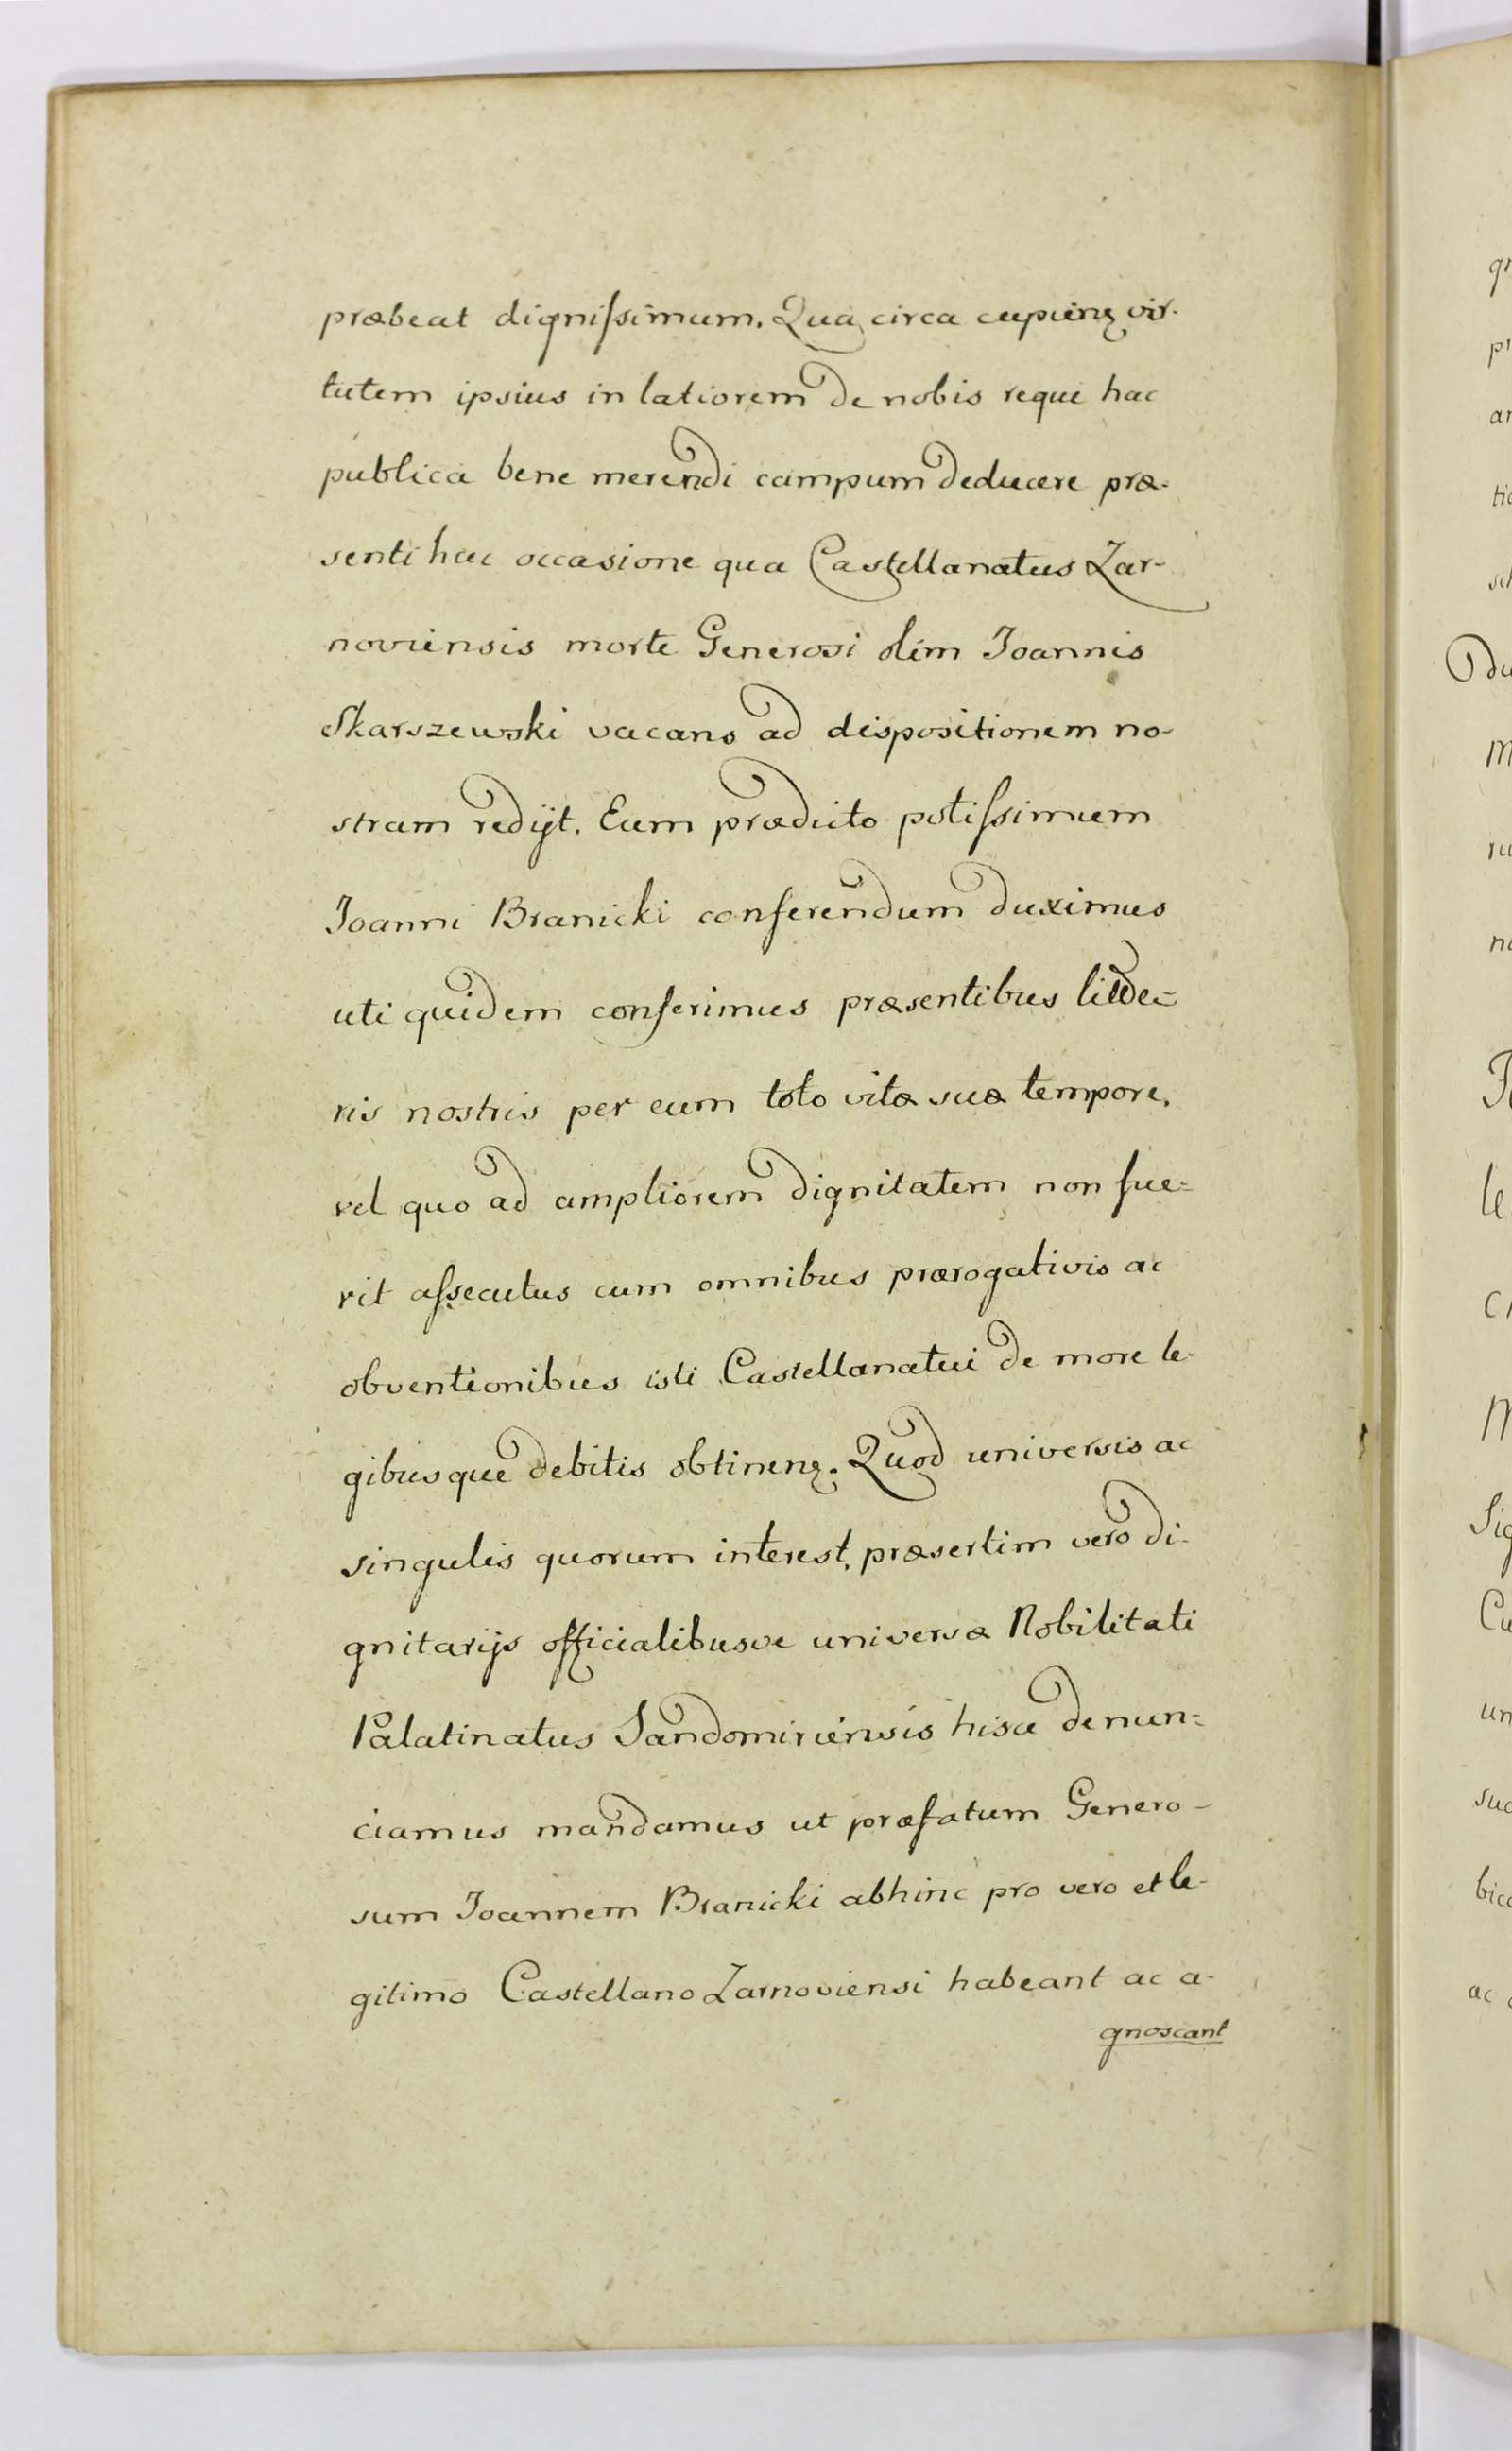 præbeat dignissimum. Qua circa cupieng vir-
tutem ipsius in latiorem de nobis reque hac
publica bene merendi campum deducere præ-
senti hac occasione qua Castellanatus Zar-
noviensis morte Generosi olim Joannis
Skarszewski vacans ad dispositionem no-
stram redijt. Eum prædicto potissimum
Joanni Branicki conferendum duximus
uti quidem conferimus præsentibus litte-
ris nostris per eum toto vitæ suæ tempore.
vel quo ad ampliorem dignitatem non fue-
rit assecutus cum omnibus prærogativis ac
obventionibus isti Castellanatui de more le-
gibusque debitis obtineng. Quod universis ac
singulis quorum interest, præsertim vero di-
gnitarijs officialibusve universæ Nobilitati
Palatinatus Sandomiriensis hisce denun-
ciamus mandamus ut præfatum Genero-
sum Joannem Branicki abhinc pro vero et le-
gitimo Castellano Zarnoviensi habeant ac a-
gnoscant